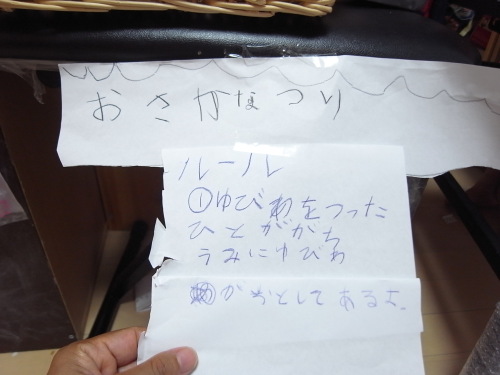 おさかなつり
ルール
①ゆびわをつった
ひとがかち
うみにゆびわ
がおとしてあるよ。